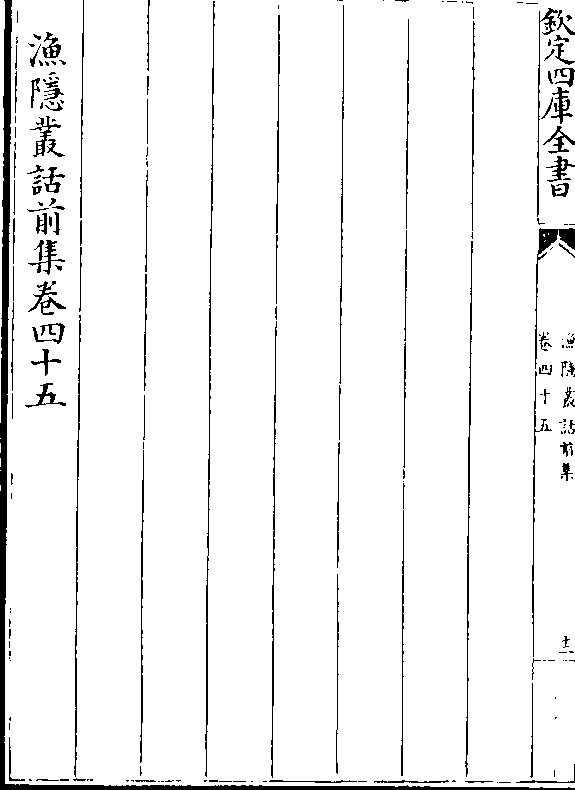 欽定四庫全書
漁隱叢話前集
卷四十五
十二
漁隱叢話前集卷四十五